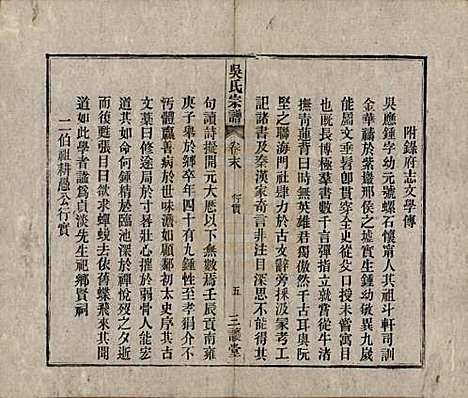 附錄府志文學傳
吳應鍾字幼元號螺石懷甯人其祖斗軒司訓
金華禱於紫巖那侯之墟實生鍾幼敏異九歲
能屬文垂髫卽貫串六籍從父授以經未嘗寓目
也旣長博極羣書數千言彈指立就居近阮
撫青蓮背日吾時無英雄君獨傲然千古耳與阮
堅之聯海門社肆力於古文辭旁採汲冢考工
記諸書及秦漢家奇言非注目深思不能得其
句讀詩擬開元大歷以下無數焉壬辰貢南雍
庚子舉於鄉卒年四十有九鍾性至孝狷介不
污體羸善病於世味澹如顧鄰初太史序其古
文葉曰修途局於寸晷壯心摧於弱骨人能宏
道如命何鍾精於臨池深於禪悅歿之夕逝
而後甦張目曰欲求蟬蛻去依舊蝶飛來共開
道如此學者謚爲貞淡先生祀鄉賢祠
二伯祖耕愚公行實
吳氏宗譜
卷末
行實
五
三讓堂